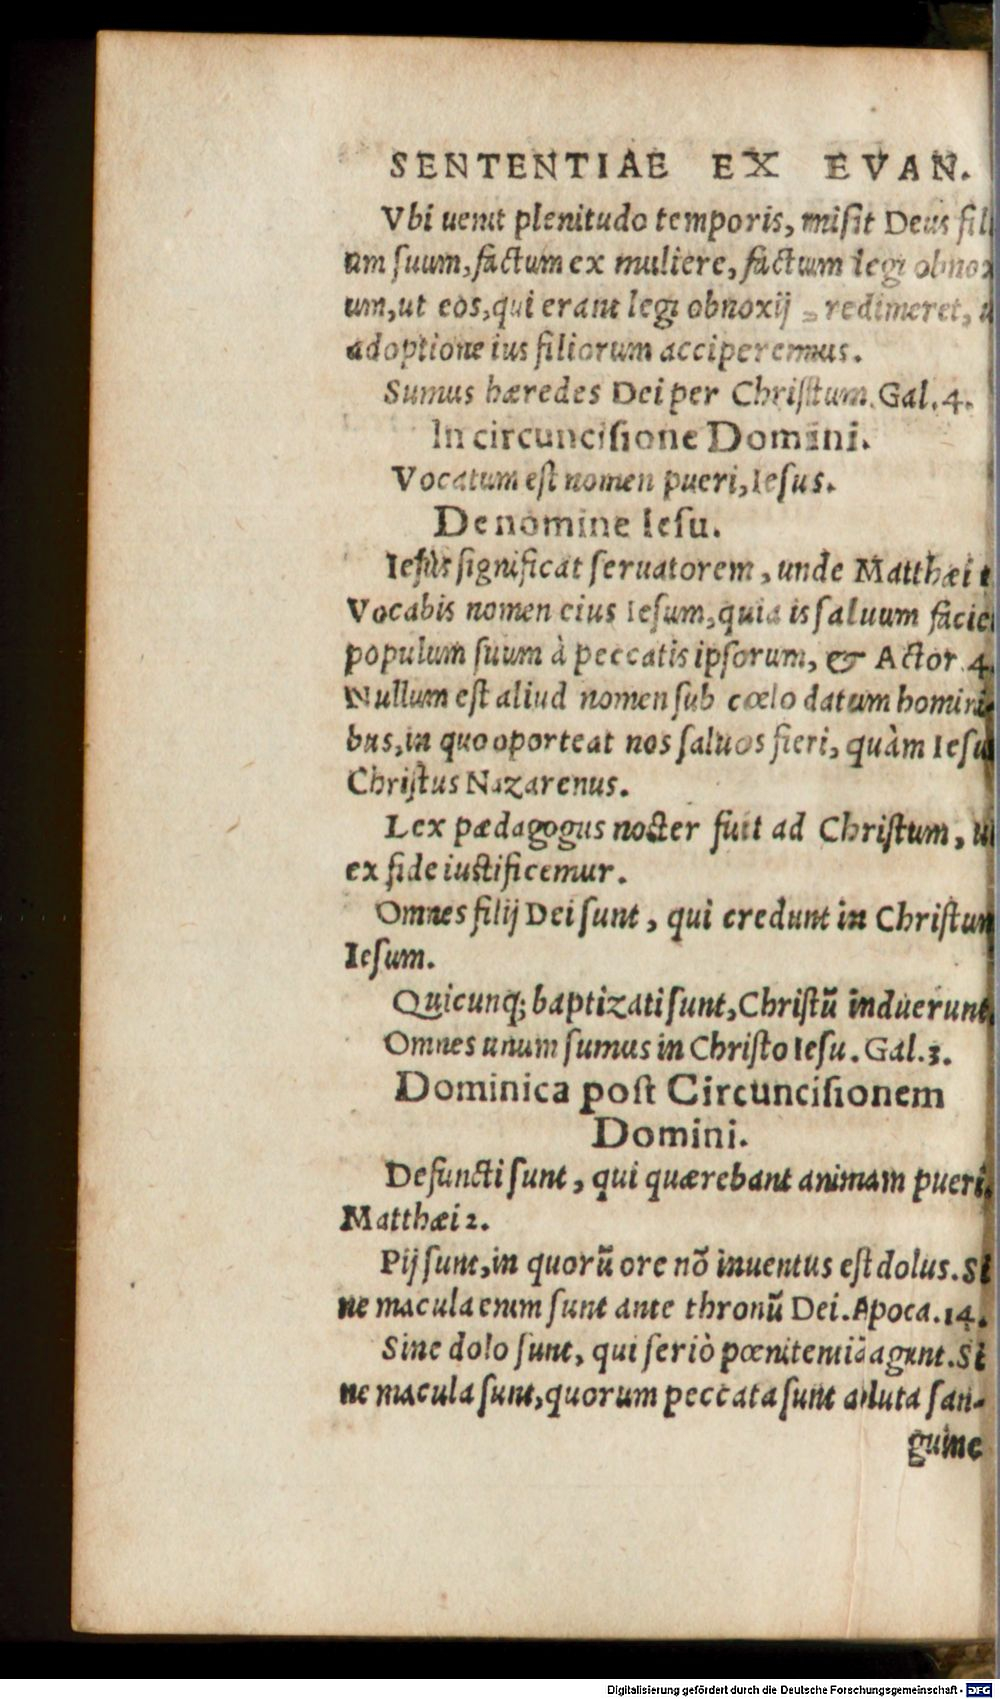 SENTENTIAE EX EVAN.
Vbi uenit plenitudo temporis, misit Deus fili
um suum, factum ex muliere, factum legi obnox
um, ut eos, qui erant legi obnoxij redimeret, u
adoptione ius filiorum acciperemus.
Sumus hæredes Dei per Christum. Gal. 4.
In circuncisione Domini.
Vocatum est nomen pueri, Iesus.
De nomine Iesu.
Iesus significat seruatorem, unde Matthæi 1
Vocabis nomen eius Iesum, quia is saluum faciet
populum suum à peccatis ipsorum, & Actor 4.
Nullum est aliud nomen sub cœlo datum homini-
bus, in quo oporteat nos saluos fieri, quàm Iesu
Christus Nazarenus.
Lex pædagogus noster fuit ad Christum, ut
ex fide iustificemur.
Omnes filij Dei sunt, qui credunt in Christum
Iesum.
Quicunq; baptizati sunt, Christũ induerunt.
Omnes unum sumus in Christo Iesu. Gal. 3.
Dominica post Circuncisionem
Domini.
Defuncti sunt, qui quærebant animam pueri.
Matthæi 2.
Pij sunt, in quorũ ore nõ inuentus est dolus. Si
ne macula enim sunt ante thronũ Dei. Apoca. 14.
Sine dolo sunt, qui seriò pœnitentiã agunt. Si
ne macula sunt, quorum peccata sunt abluta san-
guine
Digitalisierung gefördert durch die Deutsche Forschungsgemeinschaft - DFG